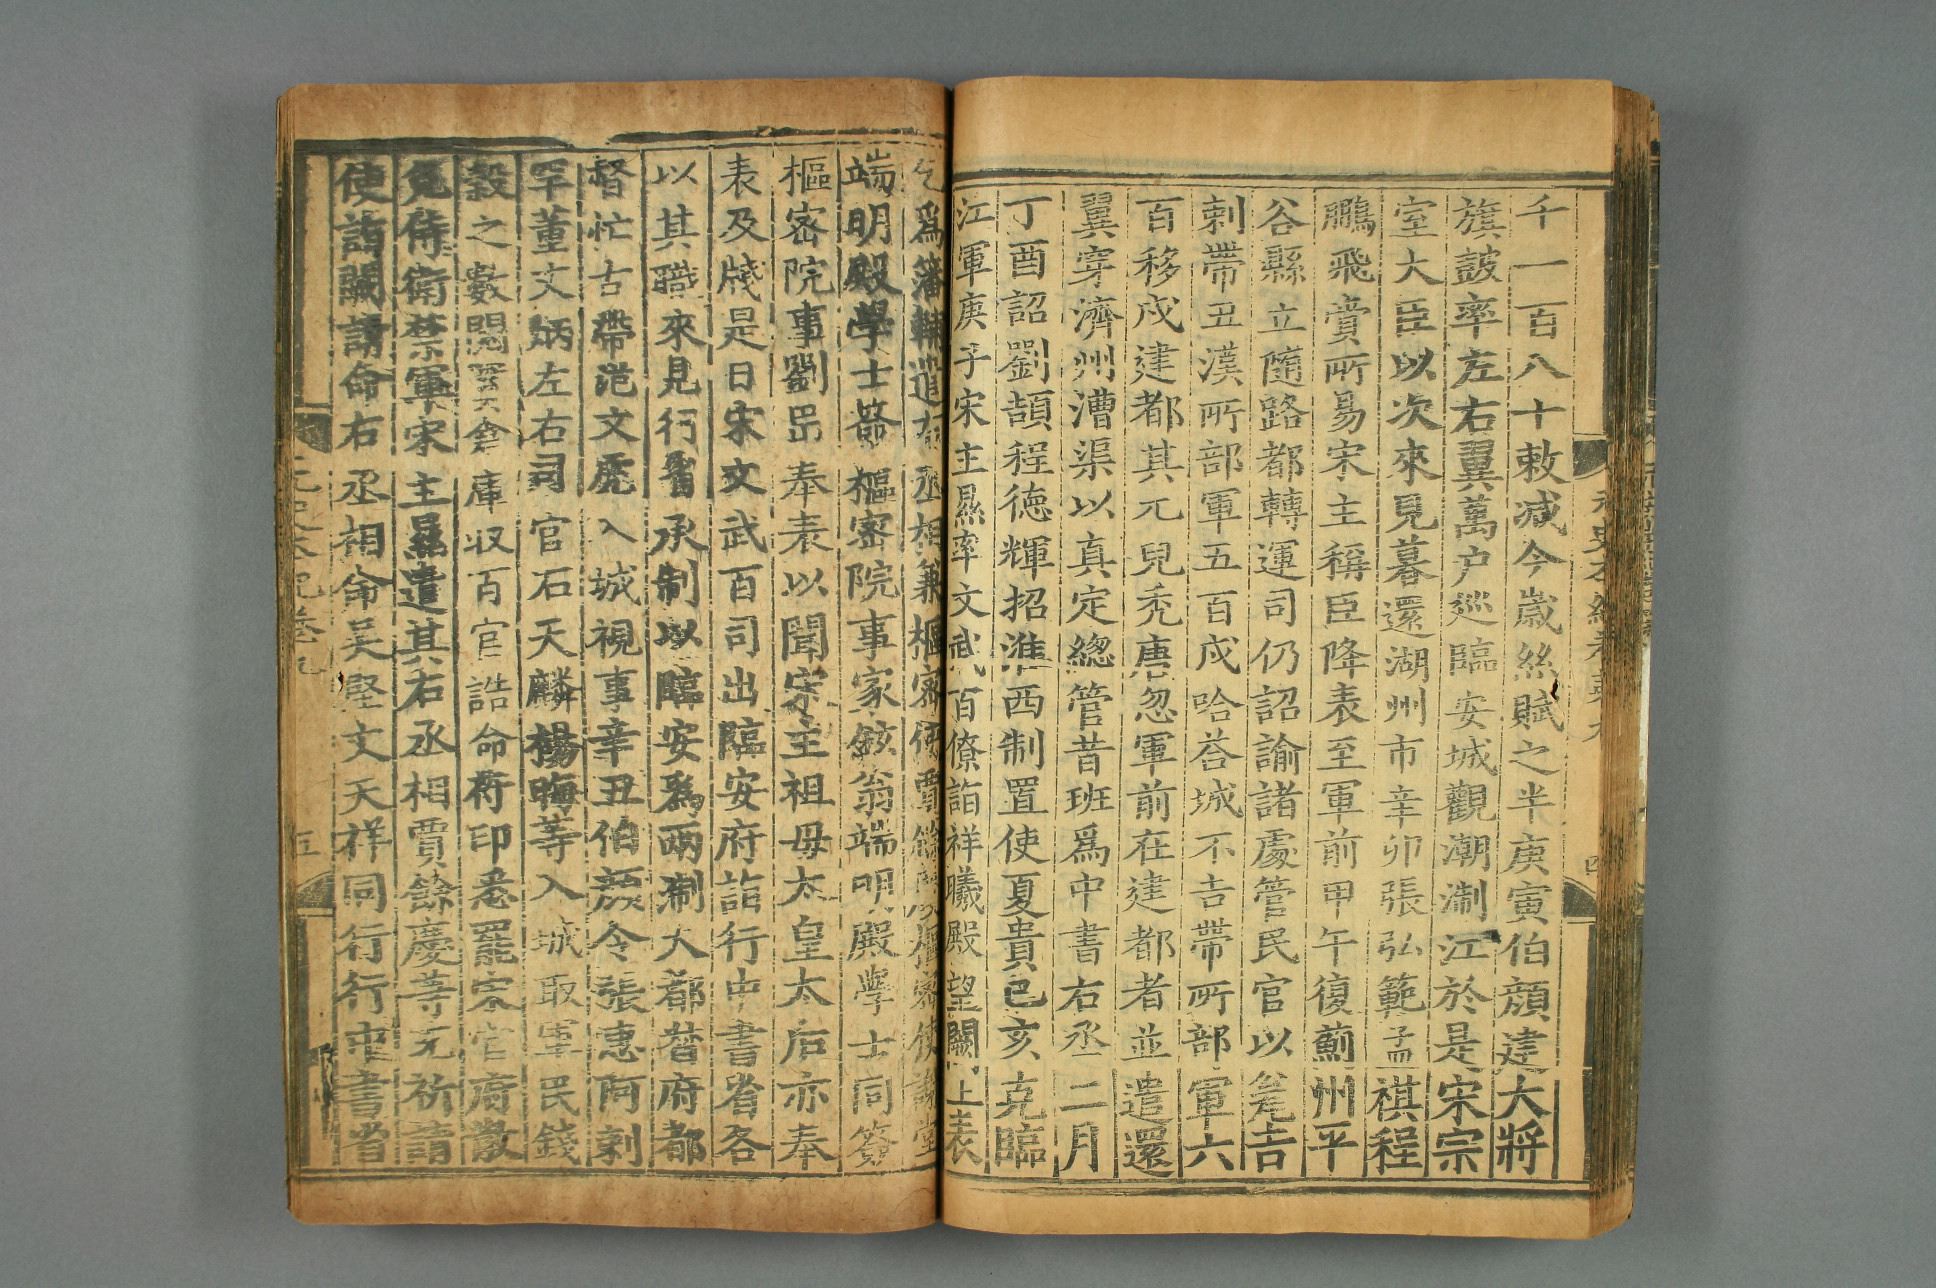 千一百八十敕減今歲絲賦之半庚寅伯顏建大將
旗鼓率左右翼萬戶巡臨安城觀潮浙江於是宋宗
室大臣以次來見暮還湖州市辛卯張弘範孟祺程
鵬飛賫所易宋主稱臣降表至軍前甲午復薊州平
谷縣立隨路都轉運司仍詔諭諸處管民官以瓮吉
剌帶丑漢所部軍五百戍哈荅城不吉帶所部軍六
百移戍建都其兀兒禿唐忽軍前在建都者並遣還
翼穿濟州漕渠以真定總管昔班爲中書右丞二月
丁酉詔劉頡程德輝招淮西制置使夏貴己亥克臨
江軍庚子宋主㬎率文武百僚詣祥曦殿望闕上表
乞爲藩輔遣右丞相兼樞密使賈餘慶樞密使謝堂
端明殿學士簽樞密院事家鉉翁端明殿學士同簽
樞密院事劉岊奉表以聞宋主祖母太皇太后亦奉
表及牋是日宋文武百司出臨安府詣行中書省各
以其職來見行省承制以臨安爲兩浙大都督府都
督忙古帶范文虎入城視事辛丑伯顏令張惠阿剌
罕董文炳左右司官石天麟楊晦等入城取軍民錢
穀之數閱實倉庫收百官誥命符印悉罷宋官府散
免侍衛禁軍宋主㬎遣其右丞相賈餘慶等充祈請
使詣闕請命右丞相命吳堅文天祥同行行中書省
元史本紀卷九
五